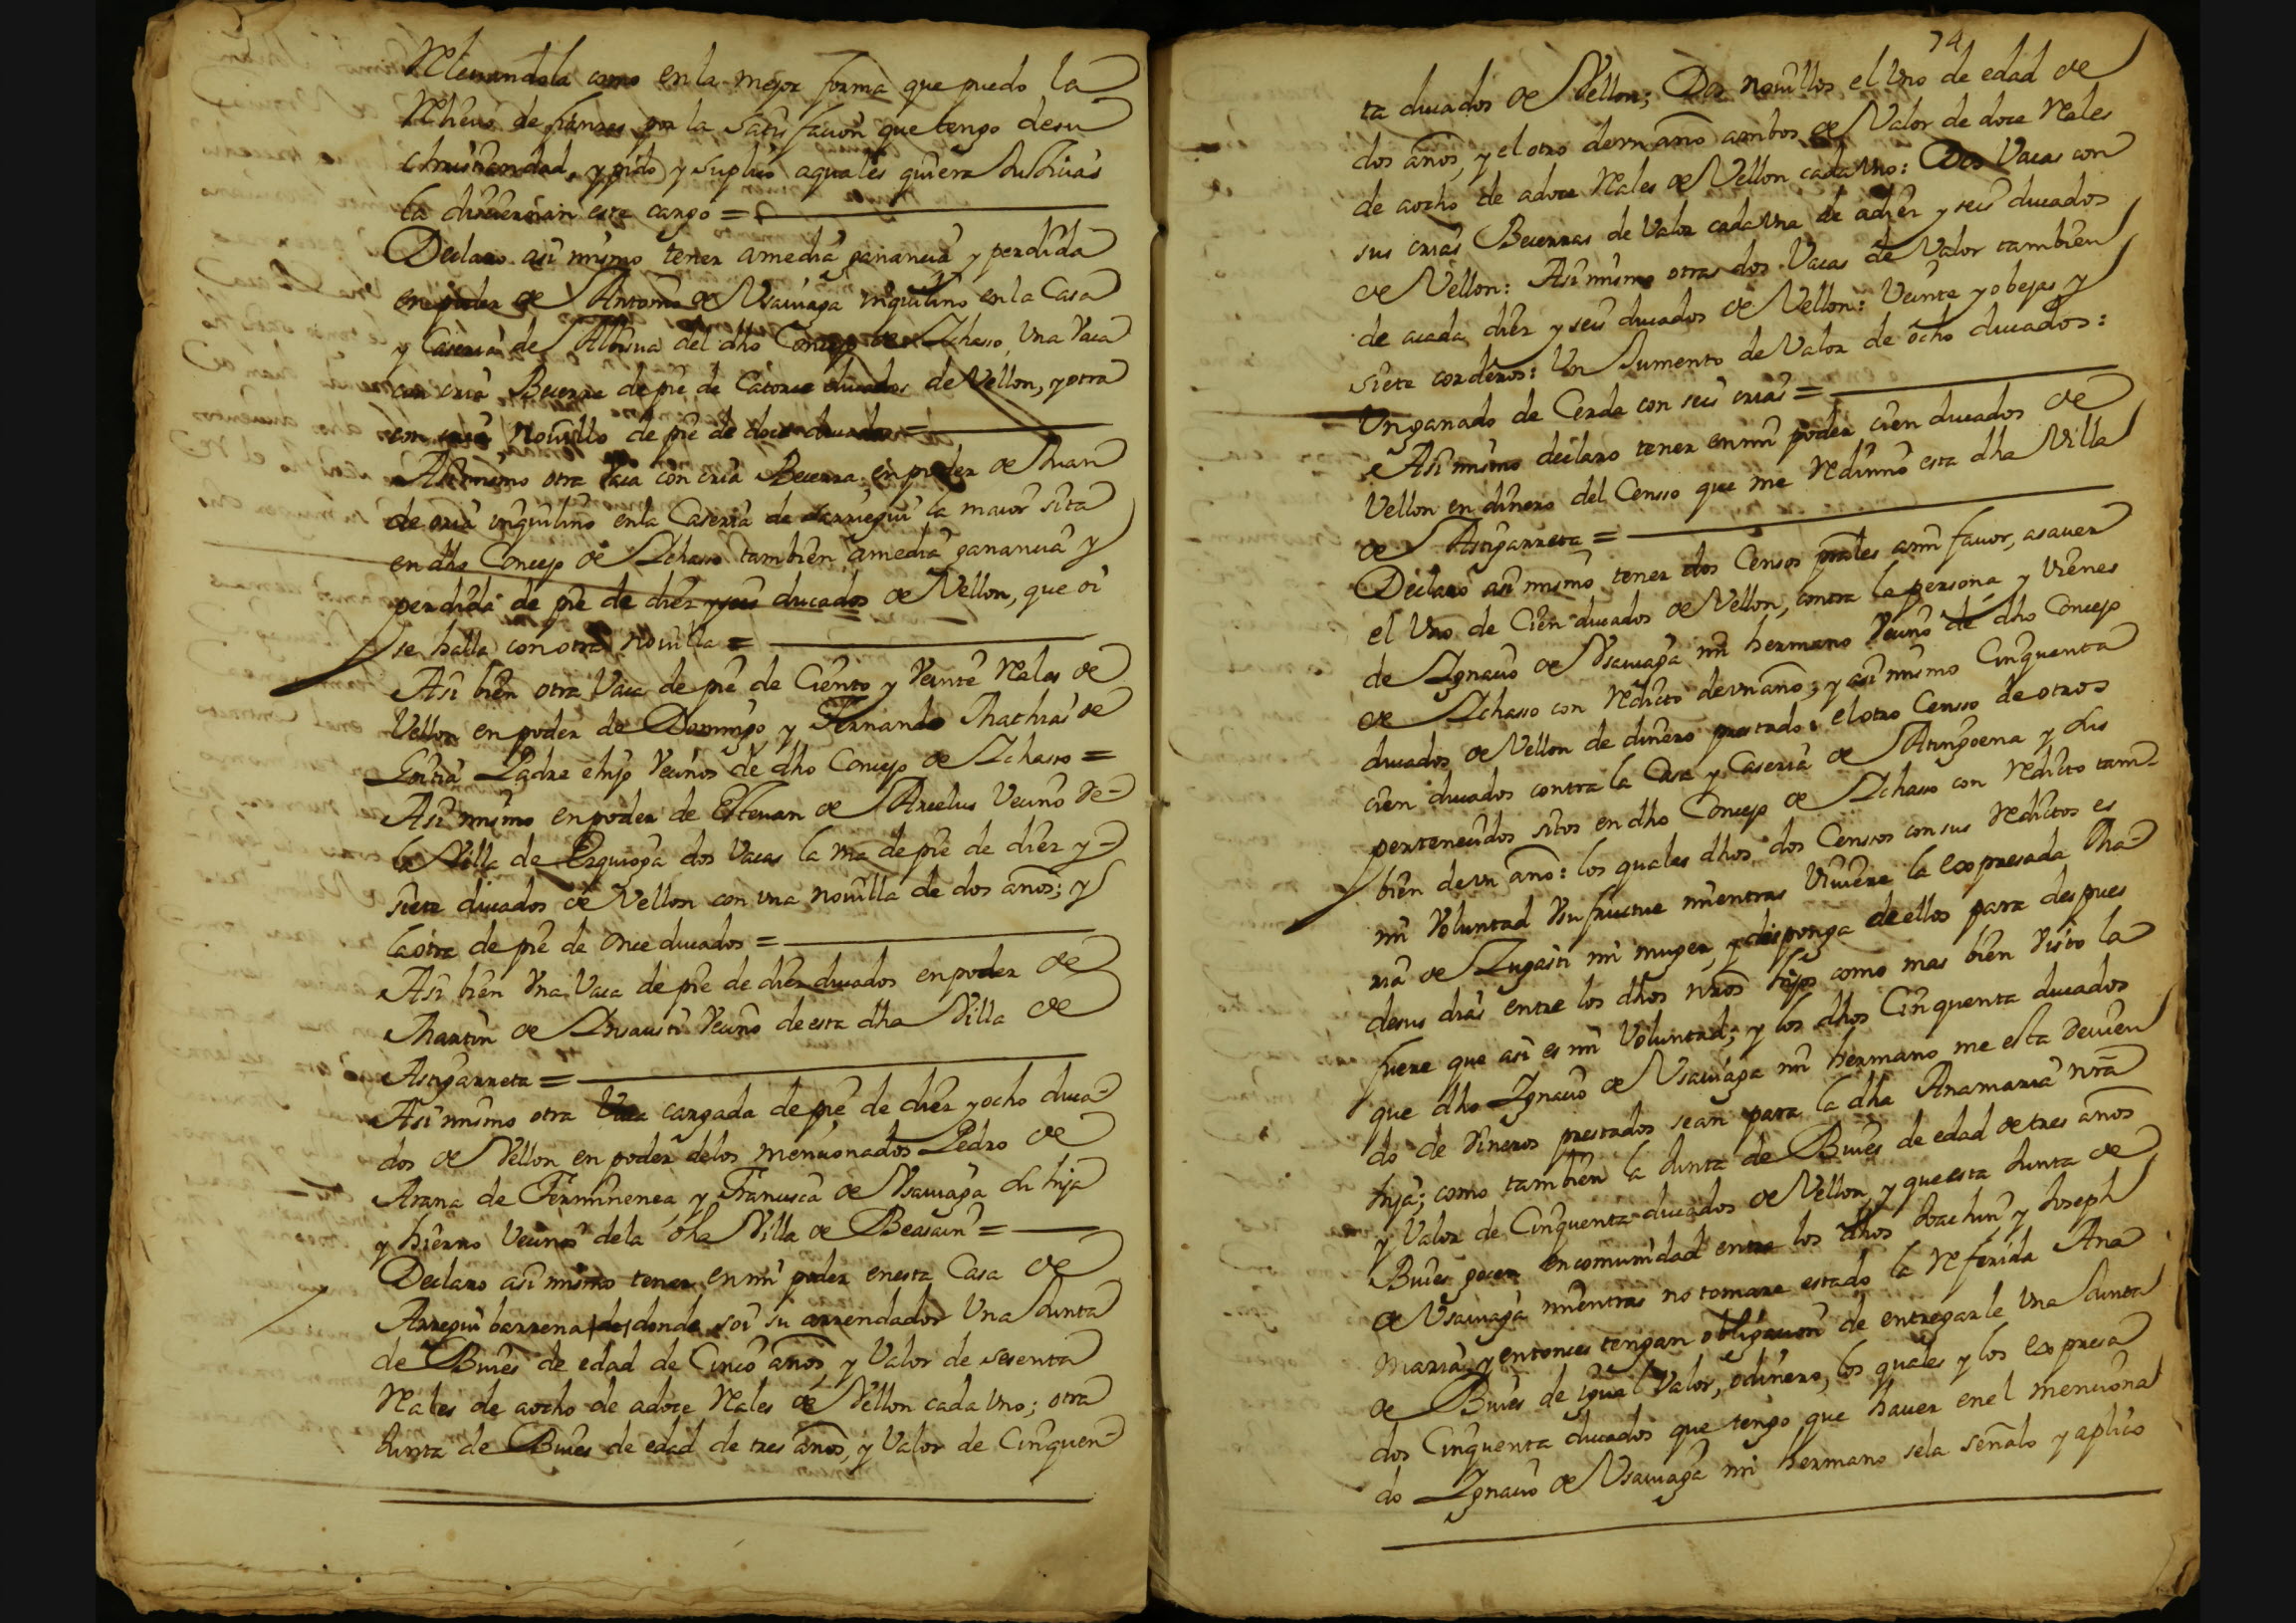 Relevandola como en la mejor forma que puedo la
Relievo de fianzas por la satisfacion que tengo de su
christiandad, y pido y suplico aquales quiera Justicias
la diciernan este cargo =
Declaro asi mismo tener amedia ganancia y perdida
en poder de Antonio de Vsauiaga inquilino en la Casa
y Caseria de Albisua del dho Concejo de Ichasso, Una Vaca
con cria Becerra de pie de Catorce ducados de Vellon, y otra
con cria Nouillo de pie de doce ducados =
Asi mismo otra Vaca con cria Becerra en poder de Juan
de oria inquilino en la Caseria de Jarriegui la maior sita
en dho Concejo de Ichasso tambien amedia ganancia y
perdida de pie de diez y seis ducados de Vellon, que oi
se halla con otra nouilla =
Asi bien otra Vaca de pie de Ciento y Veinte Reales de
Vellon en poder de Domingo y Fernando Mathias de
Goitia Padre e hijo Vecinos de dho Concejo de Ichasso =
Asi mismo en poder de Esteuan de Arcelus Vecino de
la Villa de Ezquioga dos Vacas la una de pie de diez y
siete ducados de Vellon con una nouilla de dos años; y
la otra de pie de once ducados =
Asi bien Una Vaca de pie de diez ducados en poder de
Martin de Insausti Vecino de esta dha Villa de
Astigarreta =
Asi mismo otra Vaca cargada de pie de diez y ocho duca-
dos de Vellon en poder de los mencionados Pedro de
Arana de Ferminenea, y Francisca de Vsauiaga su hija
y hierno Vecinos de la dha Villa de Beasain =
Declaro asi mismo tener en mi poder en esta Casa de
Arregui barrena de donde soi su arrendador Una Junta
de Bueies de edad de Cinco años, y Valor de sesenta
Reales de aocho de adoce Reales de Vellon cada Uno; otra
Junta de Bueies de edad de tres años, y Valor de Cinquen-
74
ta ducados de Vellon; Dos nouillos el Uno de edad de
dos años, y el otro de un año ambos de Valor de doce Reales
de aocho de adoce Reales de Vellon cada Uno: Dos Vacas con
sus crias Becerras de Valor cada Una de adiez y seis ducados
de Vellon: Asi mismo otras dos Vacas de Valor tambien
de acada diez y seis ducados de Vellon: Veinte y obejas y
siete corderos: Un Jumento de Valor de ocho ducados:
Un ganado de Cerda con seis crias =
Asi mismo declaro tener en mi poder cien ducados de
Vellon en dinero del Censso que me Redimio esta dha Villa
de Astigarreta =
Declaro asi mismo tener dos Censos prãles a mi fauor, asauer
el Uno de Cien ducados de Vellon, contra la persona y Vienes
de Ignacio de Vsauiaga mi hermano Vecino de dho Concejo
de Ichasso con Redicto de un año; y asi mismo Cinquenta
ducados de Vellon de dinero prestado: el otro Censso de otros
cien ducados contra la Casa y Caseria de Atingoena y sus
pertenecidos sitos en dho Concejo de Ichasso con Redicto tam-
bien de un año: los quales dhos dos Censos con sus Redictos es
mi Voluntad Vsufructue mientras Viuiere la expresada Ma-
ria de Zugasti mi muger, y disponga de ellos para despues
de sus dias entre los dhos nros hijos como mas bien Visto la
fuere que asi es mi Voluntad; y los dhos Cinquenta ducados
que dho Ignacio de Vsauiaga mi hermano me esta deuien
do de dineros prestados sean para la dha Anamaria nrã
hija; como tambien la Junta de Bueies de edad de tres años
y Valor de Cinquenta ducados de Vellon, y que esta Junta de
Bueies gocen en comunidad entre los dhos Joachin y Joseph
de Vsauiaga mientras no tomare estado la Referida Ana
Maria, y entonces tengan obligacion de entregarle Una Junta
de Bueies de igual Valor, o dinero, los quales y los expresa
dos Cinquenta ducados que tengo que hauer en el menciona
do Ignacio de Vsauiaga mi hermano se la señalo y aplico